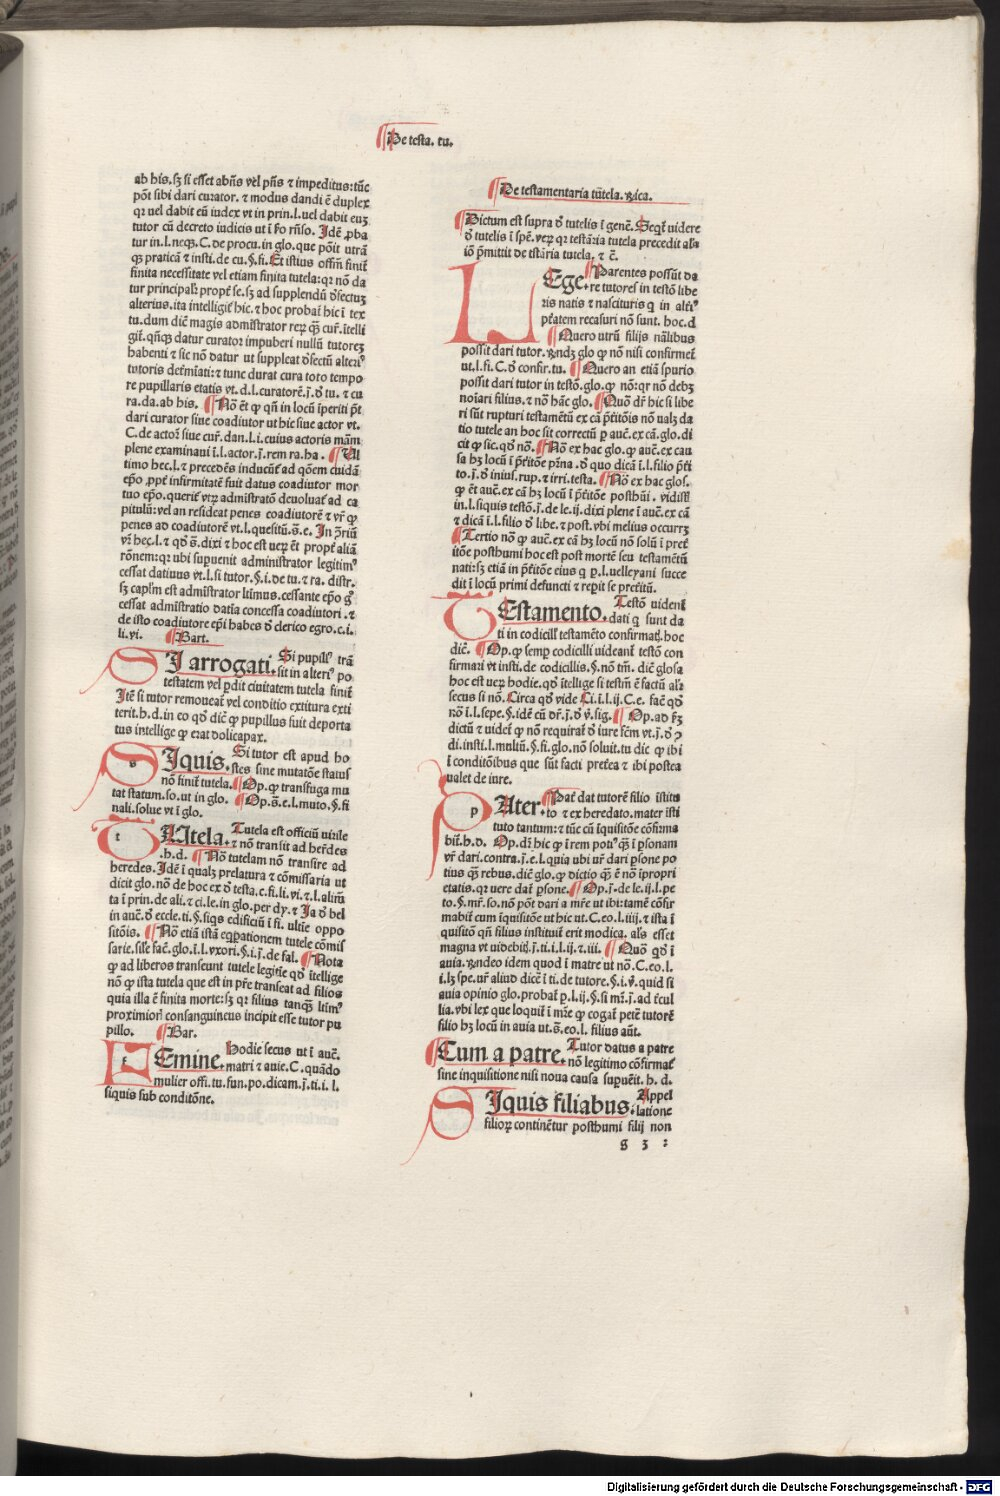 ¶De testa. tu.
ab his. sʒ si esset abñs vel pñs ⁊ impeditus: tūc
pōt sibi dari curator. ⁊ modus dandi ē duplex
qꝛ vel dabit eū iudex vt in prin. l. vel dabit euʒ
tutor cū decreto iudicis ut i ħo rñso. Idē ꝓba
tur in. l. neqʒ. C. de procu. in glo. que pōit utrā
finita necessitate vel etiam finita tutela: qꝛ nō da
tur principalr̄ propt̄ se. sʒ ad supplendū đfectuʒ
alterius. ita intelligit̄ hic. ⁊ hoc probat̄ hic ī tex
habenti ⁊ sic nō datur ut suppleat đfectū alteriꝰ
tutoris det̄miati: ⁊ tunc durat cura toto tempo
re pupillaris etatis vt. d. l. curatorē. j. đ tu. ⁊ cu
ra. da. ab his. ¶Nō ēt ꝙ qñ in locū īperiti pōt
dari curator siue coadiutor ut hic siue actor vt.
C. de actor̄ siue cur̄. dan. l. i. cuius actoris mām
plene examinaui ī. l. actor. j. rem ra. ha. ¶Ul
timo hec. l. ⁊ precedēs inducūt̄ ad qōem cuidā
epō. ꝓpt̄ infirmitatē fuit datus coadiutor mor
tuo epō. querit̄ vtrʒ admistratō deuoluat̄ ad ca
pitulū: vel an resideat penes coadiutorē ⁊ vr̄ ꝙ
penes ad coadiutorē vt. l. quesitū. s. e. In ꝯriū
vr̄ hec. l. ⁊ qđ s. dixi ⁊ hoc est ueʒ ēt propt̄ aliā
rōnem: qꝛ ubi supuenit administrator legitimꝰ
cessat datiuus vt. l. si tutor. §. i. de tu. ⁊ ra. distr.
sʒ capl̄m est admīstrator l̄timus. cessante epō gͦ
cessat admīstratio datiua concessa coadiutori. ⁊
de isto coadiutore epī habes đ clerico egro. c. i.
li. vi. ¶Bart.
SI arrogati. Si pupill̄ꝰ trā
sit in alteriꝰ po
testatem vel ꝑdit ciuitatem tutela finit̄
Itē si tutor remoueat̄ vel conditio extitura exti
terit. h. d. in eo qđ dic̄ ꝙ pupillus fuit deporta
tus intellige ꝙ erat dolicapax.
SIquis. Si tutor est apud ho
stes sine mutatōe status
nō finit̄ tutela. ¶Op. ꝙ transfuga mu
tat statum. so. ut in glo. ¶Op. s. e. l. muto. §. fi
nali. solue vt ī glo.
TUtela. Tutela est officiū uirile
⁊ nō transit ad her̄des
.h. d. ¶Nō tutelam nō transire ad
heredes. Idē ī qualʒ prelatura ⁊ cōmissaria ut
dicit glo. nō de hoc ex đ testa. c. fi. li. vi. ⁊. l. alim̄
ta ī prin. de ali. ⁊ ci. le. in glo. per dy. ⁊ Ja đ bel
in auc̄. đ eccle. ti. §. siqs edificiū ī fi. ultie oppo
sitōis. ¶Nō etiā istā eqꝑationem tutele cōmis
sarie. sil̄e fac̄. glo. ī. l. vxori. §. i. j. de fal. ¶Nota
ꝙ ad liberos transeunt tutele legitīe qđ ītellige
nō ꝙ ista tutela que est in pr̄e transeat ad filios
quia illa ē finita morte: sʒ qꝛ filius tanqʒ l̄timꝰ
proximior̄ consanguineus incipit esse tutor pu
pillo. ¶Bar.
FEmine. Hodie secus ut ī auc̄.
matri ⁊ auie. C. quādo
mulier offi. tu. fun. po. dicam. j. ti. i. l.
siquis sub conditōne.
¶De testamentaria tutela. Rica.
¶Dictum est supra đ tutelis ī genē. Seqt̄ uidere
đ tutelis ī spē. veʒ qꝛ testāria tutela precedit alīa
iō p̄mittit de testāria tutela. ⁊ c̄.
LEge. ¶Parentes possūt da
re tutores in testō libe
ris natis ⁊ nascituris q in altiꝰ
ptātem recasuri nō sunt. hoc. d
¶Quero utrū filijs nālibus
possit dari tutor. Rndʒ glo ꝙ nō nisi confirmet̄
ut. l. fi. C. đ confir. tu. ¶Quero an etiā spurio
possit dari tutor in testō. glo. ꝙ nō: qꝛ nō debʒ
noīari filius. ⁊ nō hāc glo. ¶Quō dr̄ hic si libe
ri sūt rupturi testamētū ex cā p̄titōis nō ualʒ da
tio tutele an hoc sit correctū p auc̄. ex cā. glo. di
cit ꝙ sic. qđ nō. ¶Nō ex hac glo. ꝙ auc̄. ex cau
sa hʒ locū ī p̄titōe pr̄na. đ quo dicā ī. l. filio p̄ti
to. j. đ inius. rup. ⁊ irri. testa. ¶Nō ex hac glos.
ꝙ ēt auc̄. ex cā hʒ locū ī p̄titōe posthūi. vidisti
in. l. siquis testō. j. de le. ij. dixi plene ī auc̄. ex cā
⁊ dicā ī. l. filio đ libe. ⁊ post. vbi melius occurrʒ
¶Tertio nō ꝙ auc̄. ex cā hʒ locū nō solū ī pret̄
itōe posthumi hoc est post mortē seu testamētū
nati: sʒ etiā in p̄titōe eius q p. l. uelleyani succe
dit ī locū primi defuncti ⁊ rep̄it se pret̄itū.
TEstamento. Testō uident̄
dati q sunt da
ti in codicill̄ testamēto confirmatʒ. hoc
dic̄. ¶Op. ꝙ semp codicilli uideant̄ testō con
firmari vt insti. de codicillis. §. nō tm̄. dic̄ glosa
hoc est ueʒ hodie. qđ ītellige si testm̄ ē factū al̄r
secus si nō. Circa qđ vide Ci. i. l. ij. C. e. fac̄ qđ
nō ī. l. sepe. §. idē cū dr̄. j. đ v̄. sig. ¶Op. ad h̄ʒ
dictū ⁊ uidet̄ ꝙ nō requirat̄ đ iure fc̄m vt. j. đ ꝯ
di. insti. l. multū. §. fi. glo. nō soluit. tu dic ꝙ ibi
ī conditōibus que sūt facti preťea ⁊ ibi postea
ualet de iure.
PAter. ¶Pat̄ dat tutorē filio īstitu
to ⁊ ex heredato. mater īsti
tuto tantum: ⁊ tūc cū īquisitōe cōfirma
bit̄. h. d. Op. dr̄ hic ꝙ ī rem potiꝰ qʒ ī ꝑsonam
vr̄ dari. contra. j. e. l. quia ubi ur̄ dari ꝑsone po
tius qʒ rebus. dic̄ glo. ꝙ dictio qʒ ē nō īpropri
etatis. qꝛ uere dat̄ ꝑsone. ¶Op. j. de le. ij. l. pe
to. §. mr̄. so. nō pōt dari a mr̄e ut ibi: tamē cōfir
mabit̄ cum īquisitōe ut hic ut. C. eo. l. iiij. ⁊ ista ī
quisitō qñ filius instituit̄ erit modica. al̄s esset
magna vt uidebitʒ. j. ti. i. l. ij. ⁊. iii. ¶Quō qđ ī
auia. Rndeo idem quod ī matre ut nō. C. eo. l.
i. lʒ spe. ur̄ aliud dicē ī ti. de tutore. §. i. v̄. quid si
auia opinio glo. probat̄ p. l. ij. §. si mr̄. j. ad t̄cul
lia. vbi lex que loquit̄ ī mr̄e ꝙ cogat̄ petē tutorē
filio hʒ locū in auia ut. s. eo. l. filius aūt.
¶Cum a patre. Tutor datus a patre
nō legitimo cōfirmat̄
sine inquisitione nisi noua causa supuēit. h. d.
SIquis filiabus. Appel
latione
filioʒ continētur posthumi filij non
g 3
Digitalisierung gefördert durch die Deutsche Forschungsgemeinschaft - DFG